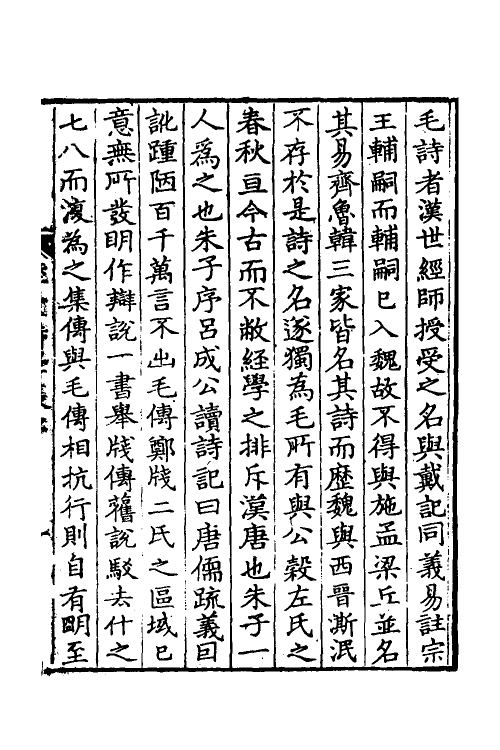 毛詩者漢世經師授受之名與戴記同義易註宗
王輔嗣而輔嗣已入魏故不得與施孟梁丘並名
其易齊魯韓三家皆名其詩而歴魏與西晋澌泯
不存於是詩之名遂獨為毛所有與公穀左氏之
春秋亘今古而不敝經學之排斥漢唐也朱子一
人爲之也朱子序呂成公讀詩記曰唐儒疏義囘
訛踵陋百千萬言不出毛傳鄭牋二氏之區域已
意無所發明作辯說一書舉牋傳舊說駁去什之
七八而復為之集傳與毛傳相抗行則自有明至